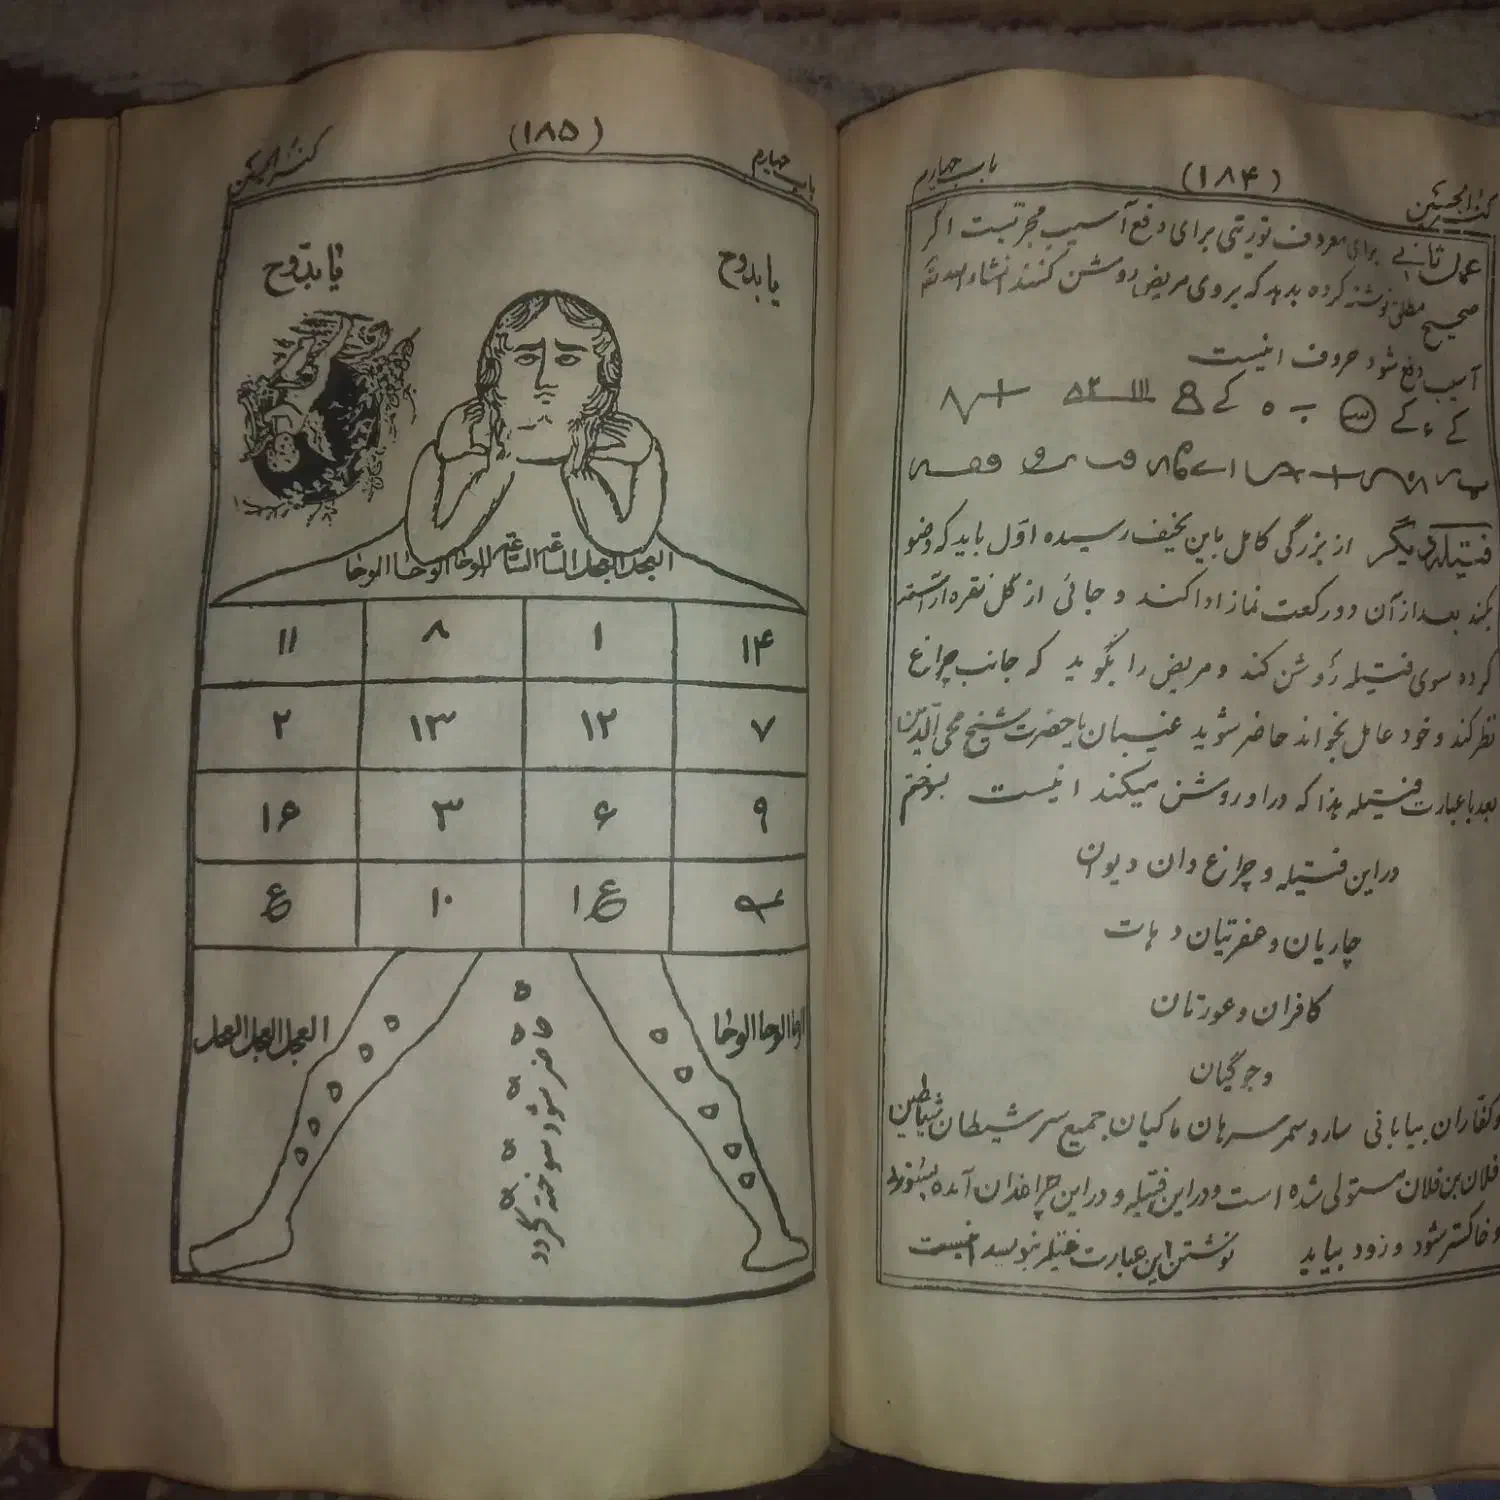 باب چهارم
(۱۸۴)
کنز الحسین
عمل ثانی برای معروف تورتی برای دفع آسیب مجربست اگر
صحیح مطلق نوشته کرده بدهد که بروی مریض روشن کنند انشاءالله
آسیب دفع شود حروف اینست
فتیله دیگر از بزرگی کامل باین نحیف رسیده اول باید که وضو
بکند بعد از آن دو رکعت نماز ادا کند و جائی از گل نقره آراسته
کرده سوی فتیله روشن کند و مریض را بگوید که جانب چراغ
نظر کند و خود عامل بخواند حاضر شوید غیبیان یا حضرت شیخ محی الدین
بعد با عبارت فتیله هذا که در او روشن میکند اینست بسوختم
در این فتیله و چراغ دان دیوان
چاریان و عفرتیان د هات
کافران و عورتان
و جوگیان
و کفاران بیابانی سار و سمر سرهان ماکیان جمیع سر شیطان شیاطین
فلان بن فلان مستولی شده است و در این فتیله و در این چراغدان آمده بسوزد
و خاکستر شود و زود بیاید نوشتن این عبارت فتیله بنویسد اینست
باب چهارم
(۱۸۵)
کنز الحسین
یا بدوح
یا بدوح
العجل العجل الساعة الساعة الوحا الوحا الوحا
۱۱ ۸ ۱ ۱۴
۲ ۱۳ ۱۲ ۷
۱۶ ۳ ۶ ۹
۱۰
الوحا الوحا الوحا
العجل العجل العجل
حاضر شود سوخته گردد